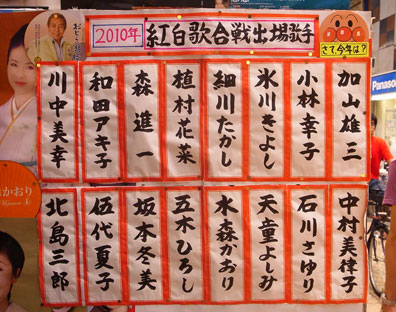 2010年 紅白歌合戦出場歌手
さて、今年は?
加山雄三
小林幸子
氷川きよし
細川たかし
植村花菜
森進一
和田アキ子
川中美幸
中村美律子
石川さゆり
天童よしみ
水森かおり
五木ひろし
坂本冬美
伍代夏子
北島三郎
Panasonic
かおり